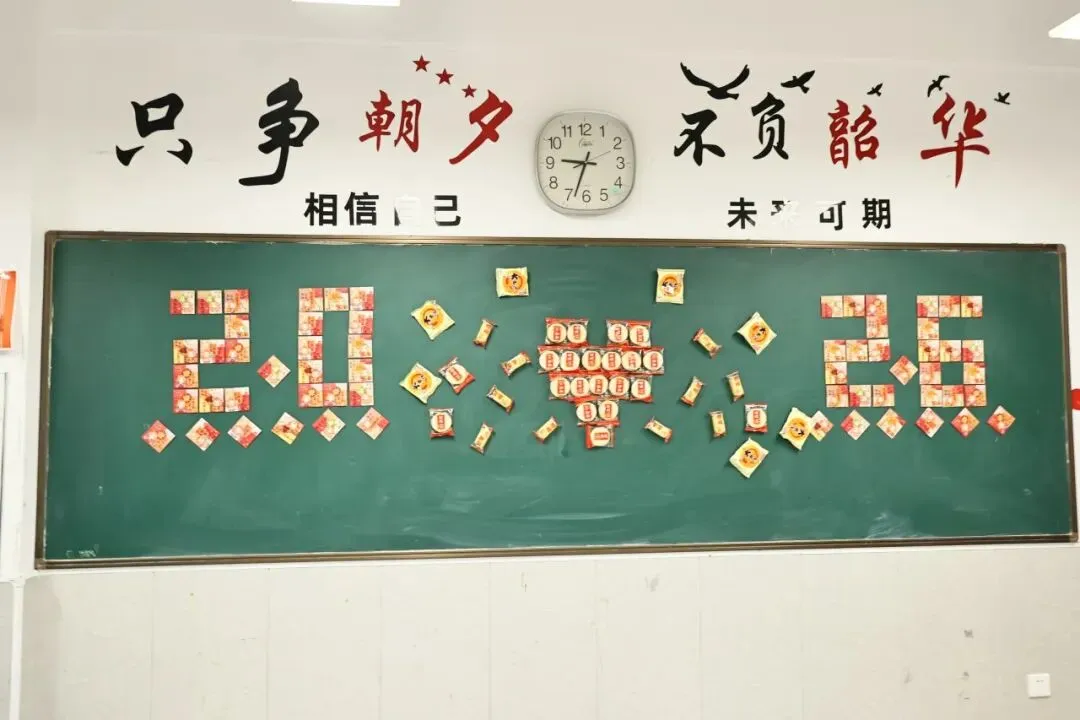 只争朝夕
不负韶华
相信自己
未来可期
12
1
2
3
4
5
6
7
8
9
10
11
2026